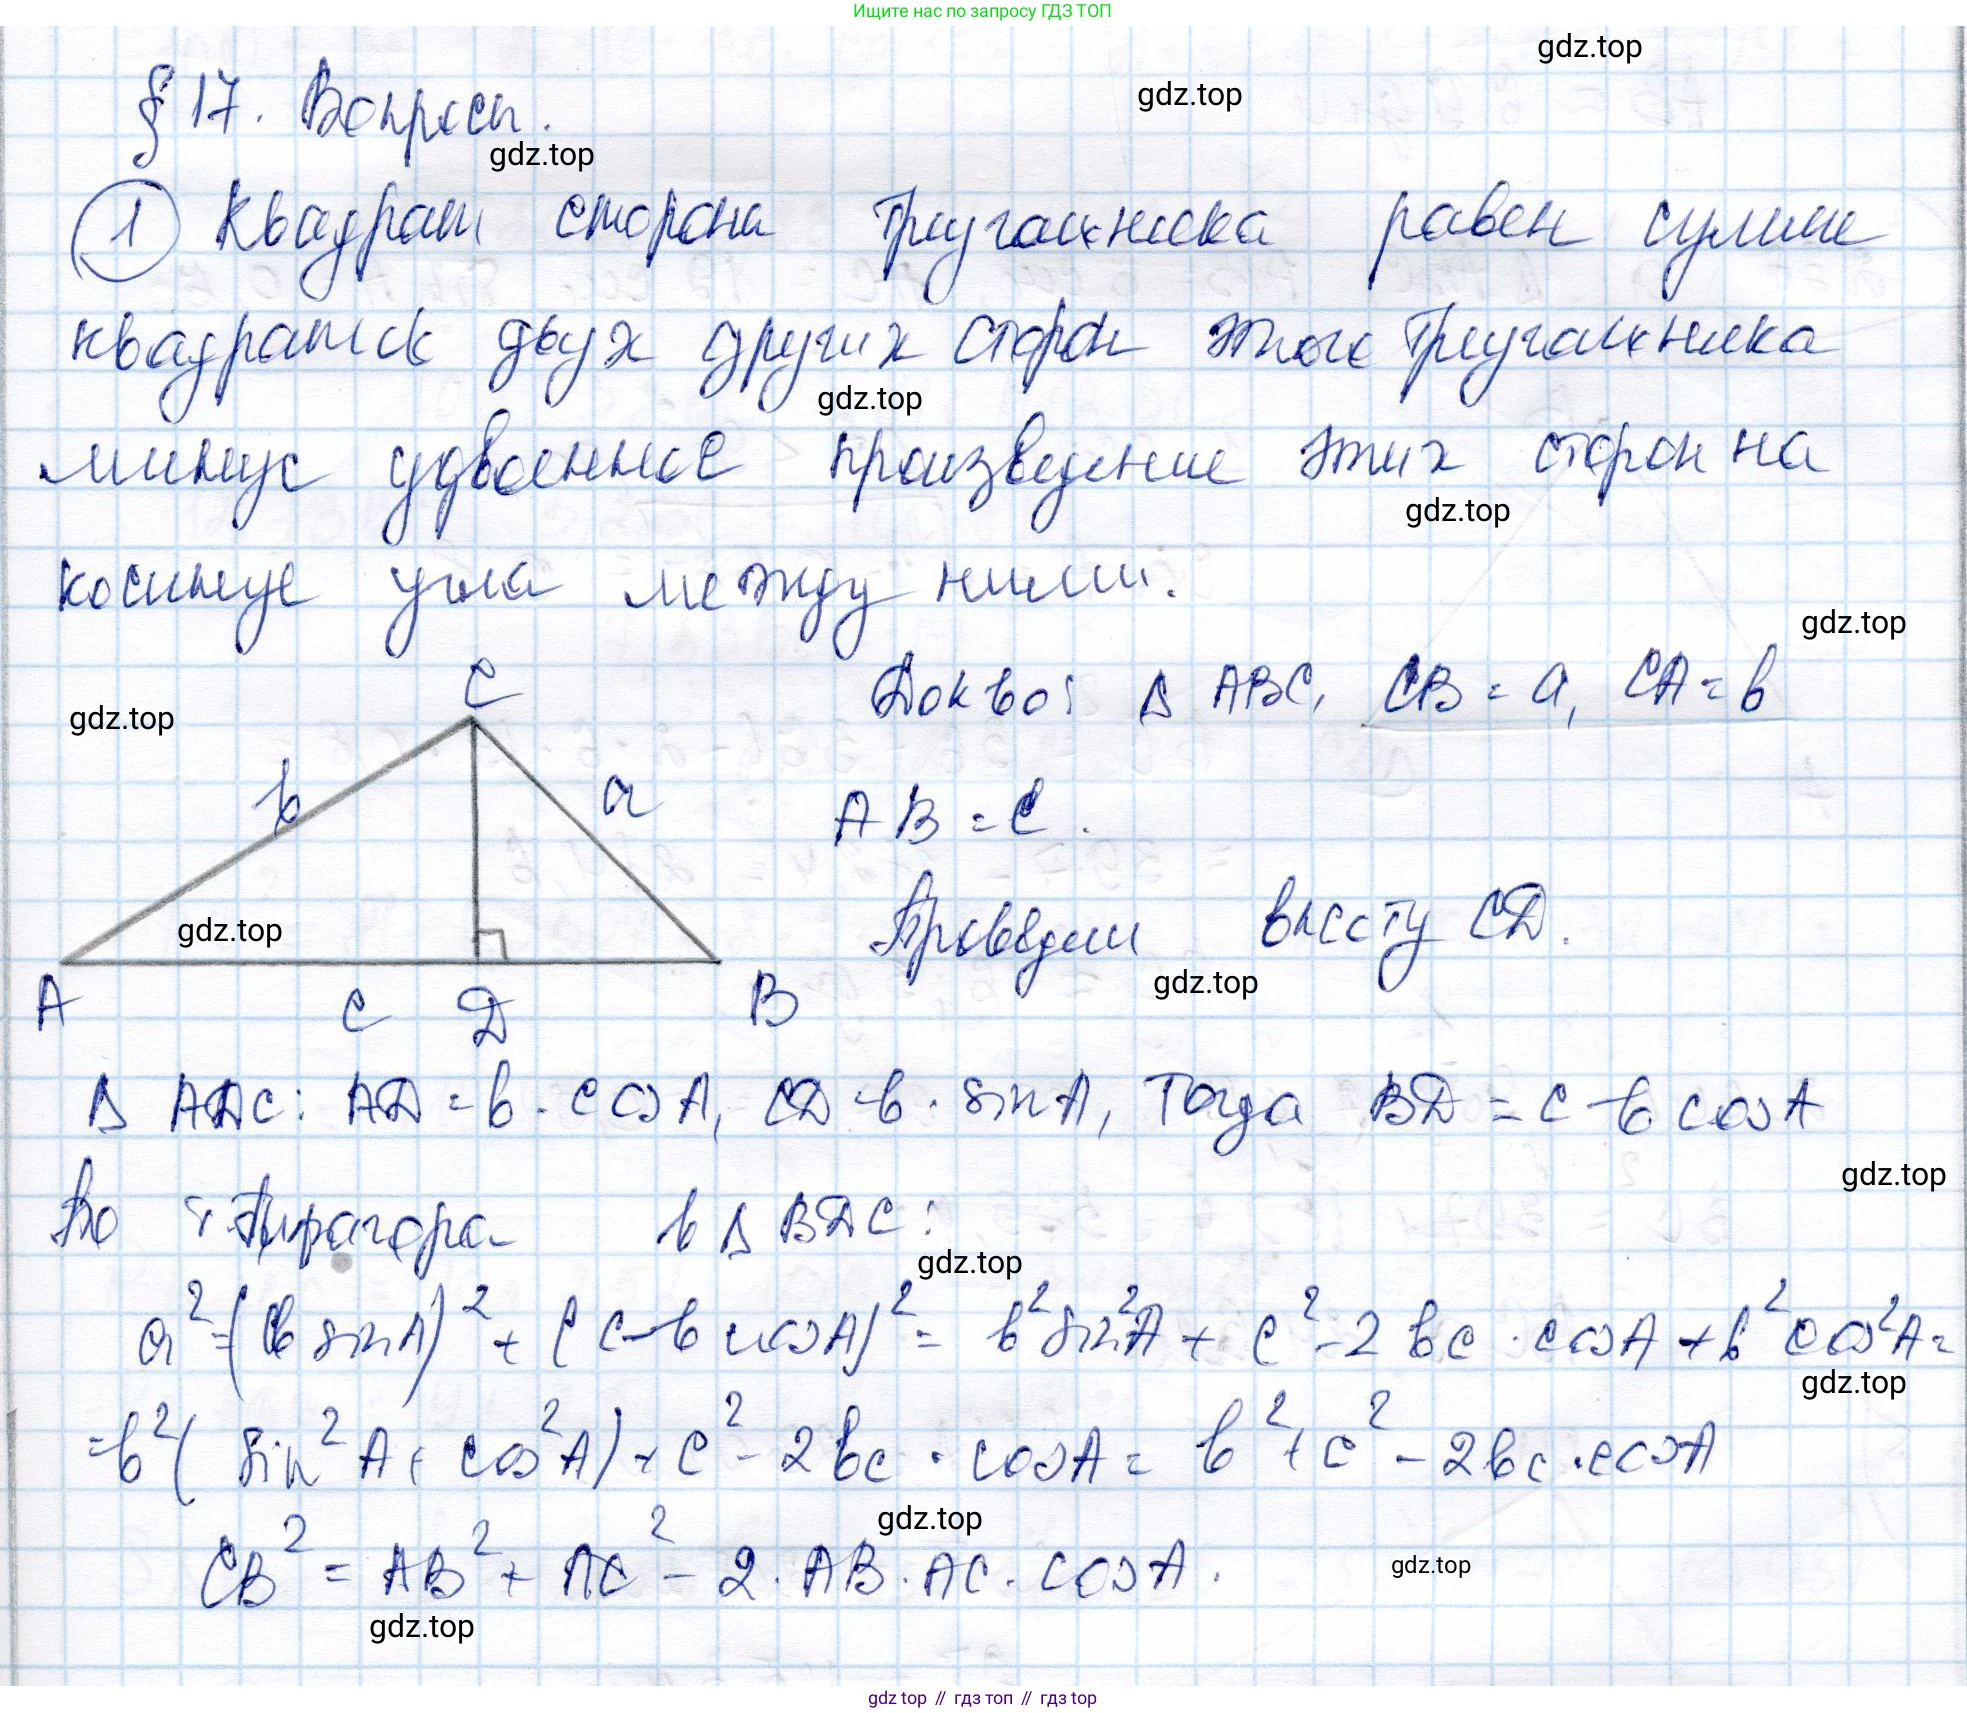 Ищите нас по запросу ГДЗ ТОП
gdz.top
gdz.top
§ 17. Вопросы.
gdz.top
1 Квадрат стороны треугольника равен сумме
квадратов двух других сторон этого треугольника
gdz.top
минус удвоенное произведение этих сторон на
gdz.top
косинус угла между ними.
gdz.top
C
Док-во: Δ ABC, CB = a, CA = b
gdz.top
b
a
AB = c.
gdz.top
Проведём высоту CD.
gdz.top
A c D B
Δ ADC: AD = b · cos A, CD = b · sin A, Тогда BD = c - b cos A
gdz.top
По т. Пифагора в Δ BDC:
gdz.top
a² = (b sin A)² + (c - b cos A)² = b² sin² A + c² - 2 bc · cos A + b² cos² A =
gdz.top
= b² (sin² A + cos² A) + c² - 2 bc · cos A = b² + c² - 2 bc · cos A
gdz.top
CB² = AB² + AC² - 2 · AB · AC · cos A.
gdz.top
gdz.top
gdz top // гдз топ // гдз top